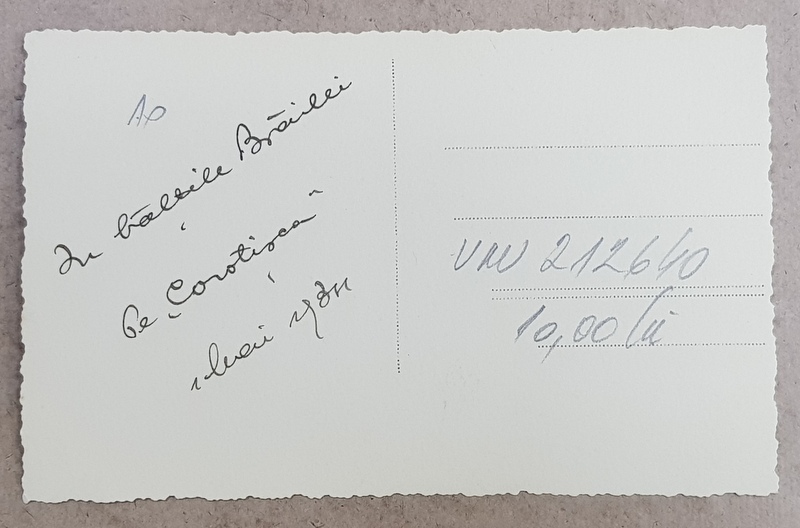 10
În bălțile Brăilei
Pe „Corotișca"
Mai
VNU 212640
10,00 lei